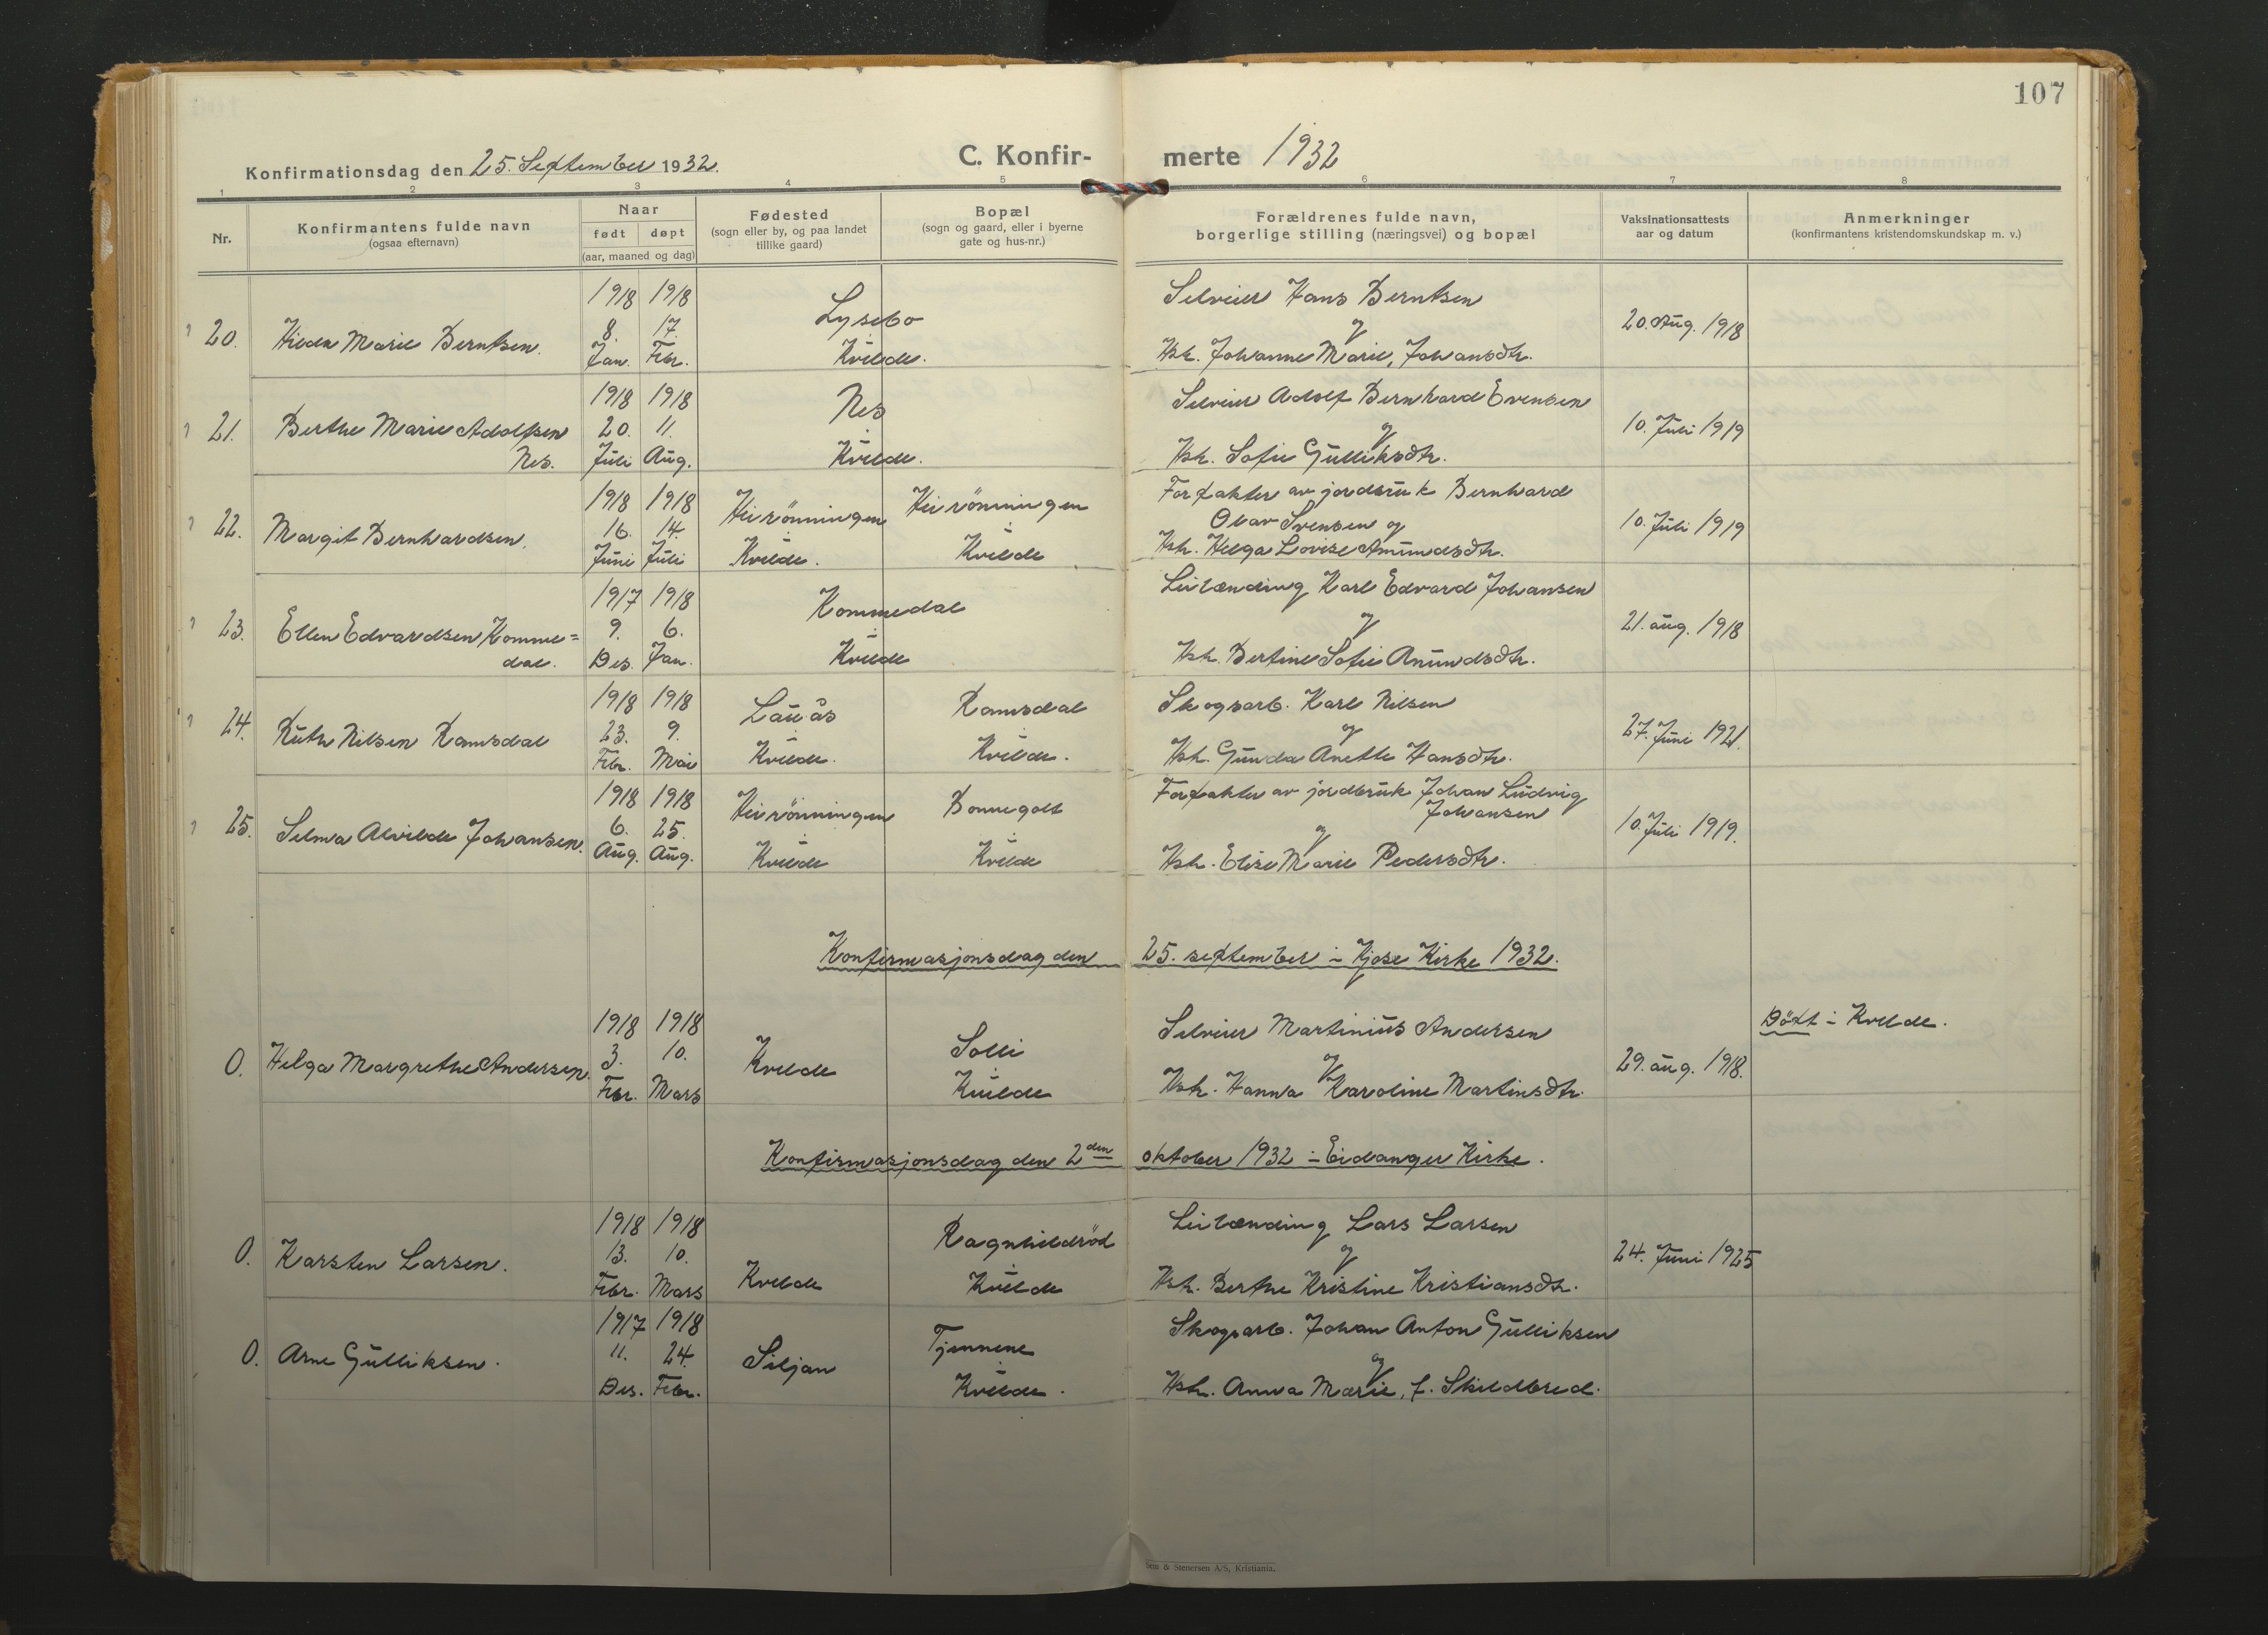 107
Konfirmationsdag den 25. September 1932.
C. Konfir- merte 1932
1 2 3 4 5 6 7 8
Nr.
Konfirmantens fulde navn
(ogsaa efternavn)
Naar
født døpt
(aar, maaned og dag)
Fødested
(sogn eller by, og paa landet
tillike gaard)
Bopæl
(sogn og gaard, eller i byerne
gate og hus-nr.)
Forældrenes fulde navn,
borgerlige stilling (næringsvei) og bopæl
Vaksinationsattests
aar og datum
Anmerkninger
(konfirmantens kristendomskundskap m. v.)
1918 1918 Lysebo Selveier Hans Berntsen
20. Hilda Marie Berntsen. 8. 17. og 20. Aug. 1918
Jan. Febr. Kvelde. Hstr. Johanne Marie, Johansdtr.
1918 1918 Nes Selveier Adolf Bernhard Evensen
21. Berthe Marie Adolfsen 20. 11. og 10. Juli 1919
Nes. Juli Aug. Kvelde. Hstr. Sofie Gulliksdtr.
1918 1918 Heirönningen Heirönningen Forpakter av jordbruk Bernhard
22. Margit Bernhardsen. 16. 14. Olav Svensen og 10. Juli 1919
Juni Juli Kvelde. Kvelde Hstr. Helga Lovise Amundsdtr.
1917 1918 Kommedal Leilænding Karl Edvard Johansen
23. Ellen Edvardsen Komme= 9. 6. og 21. aug. 1918
dal. Des. Jan. Kvelde Hstr. Bertine Sofie Anundsdtr.
1918 1918 Lauås Ramsdal Skogsarb. Karl Nilsen
24. Ruth Nilsen Ramsdal 23. 9. og 27. Juni 1921.
Febr. Mai Kvelde. Kvelde. Hstr. Gunda Anette Hansdtr.
1918 1918 Heirönningen Bonnegolt Forpakter av jordbruk Johan Ludvig
25. Selma Alvilde Johansen. 6. 25. Johansen 10. Juli 1919.
Aug. Aug. Kvelde Kvelde og
Hstr. Elise Marie Pedersdtr.
Konfirmasjonsdag den 25. september i Kjose Kirke 1932.
1918 1918 Solli Selveier Martinius Andersen Döpt i Kvelde.
0. Helga Margrethe Andersen. 3. 10. Kvelde og 29. aug. 1918.
Febr. Mars Kvelde Hstr. Hanna Karoline Martinsdtr.
Konfirmasjonsdag den 2den oktober 1932 i Eidanger Kirke.
1918 1918 Ragnhildröd Leilænding Lars Larsen
0. Karsten Larsen. 13. 10. og 24. Juni 1925
Febr. Mars Kvelde Kvelde Hstr. Berthe Kristine Kristiansdtr.
1917 1918 Tjennene Skogsarb. Johan Anton Gulliksen
0. Arne Gulliksen. 11. 24. Siljan og
Des. Febr. Kvelde. Hstr. Anna Marie, f. Skildbred.
& Stenersen A/S, Kristiania.